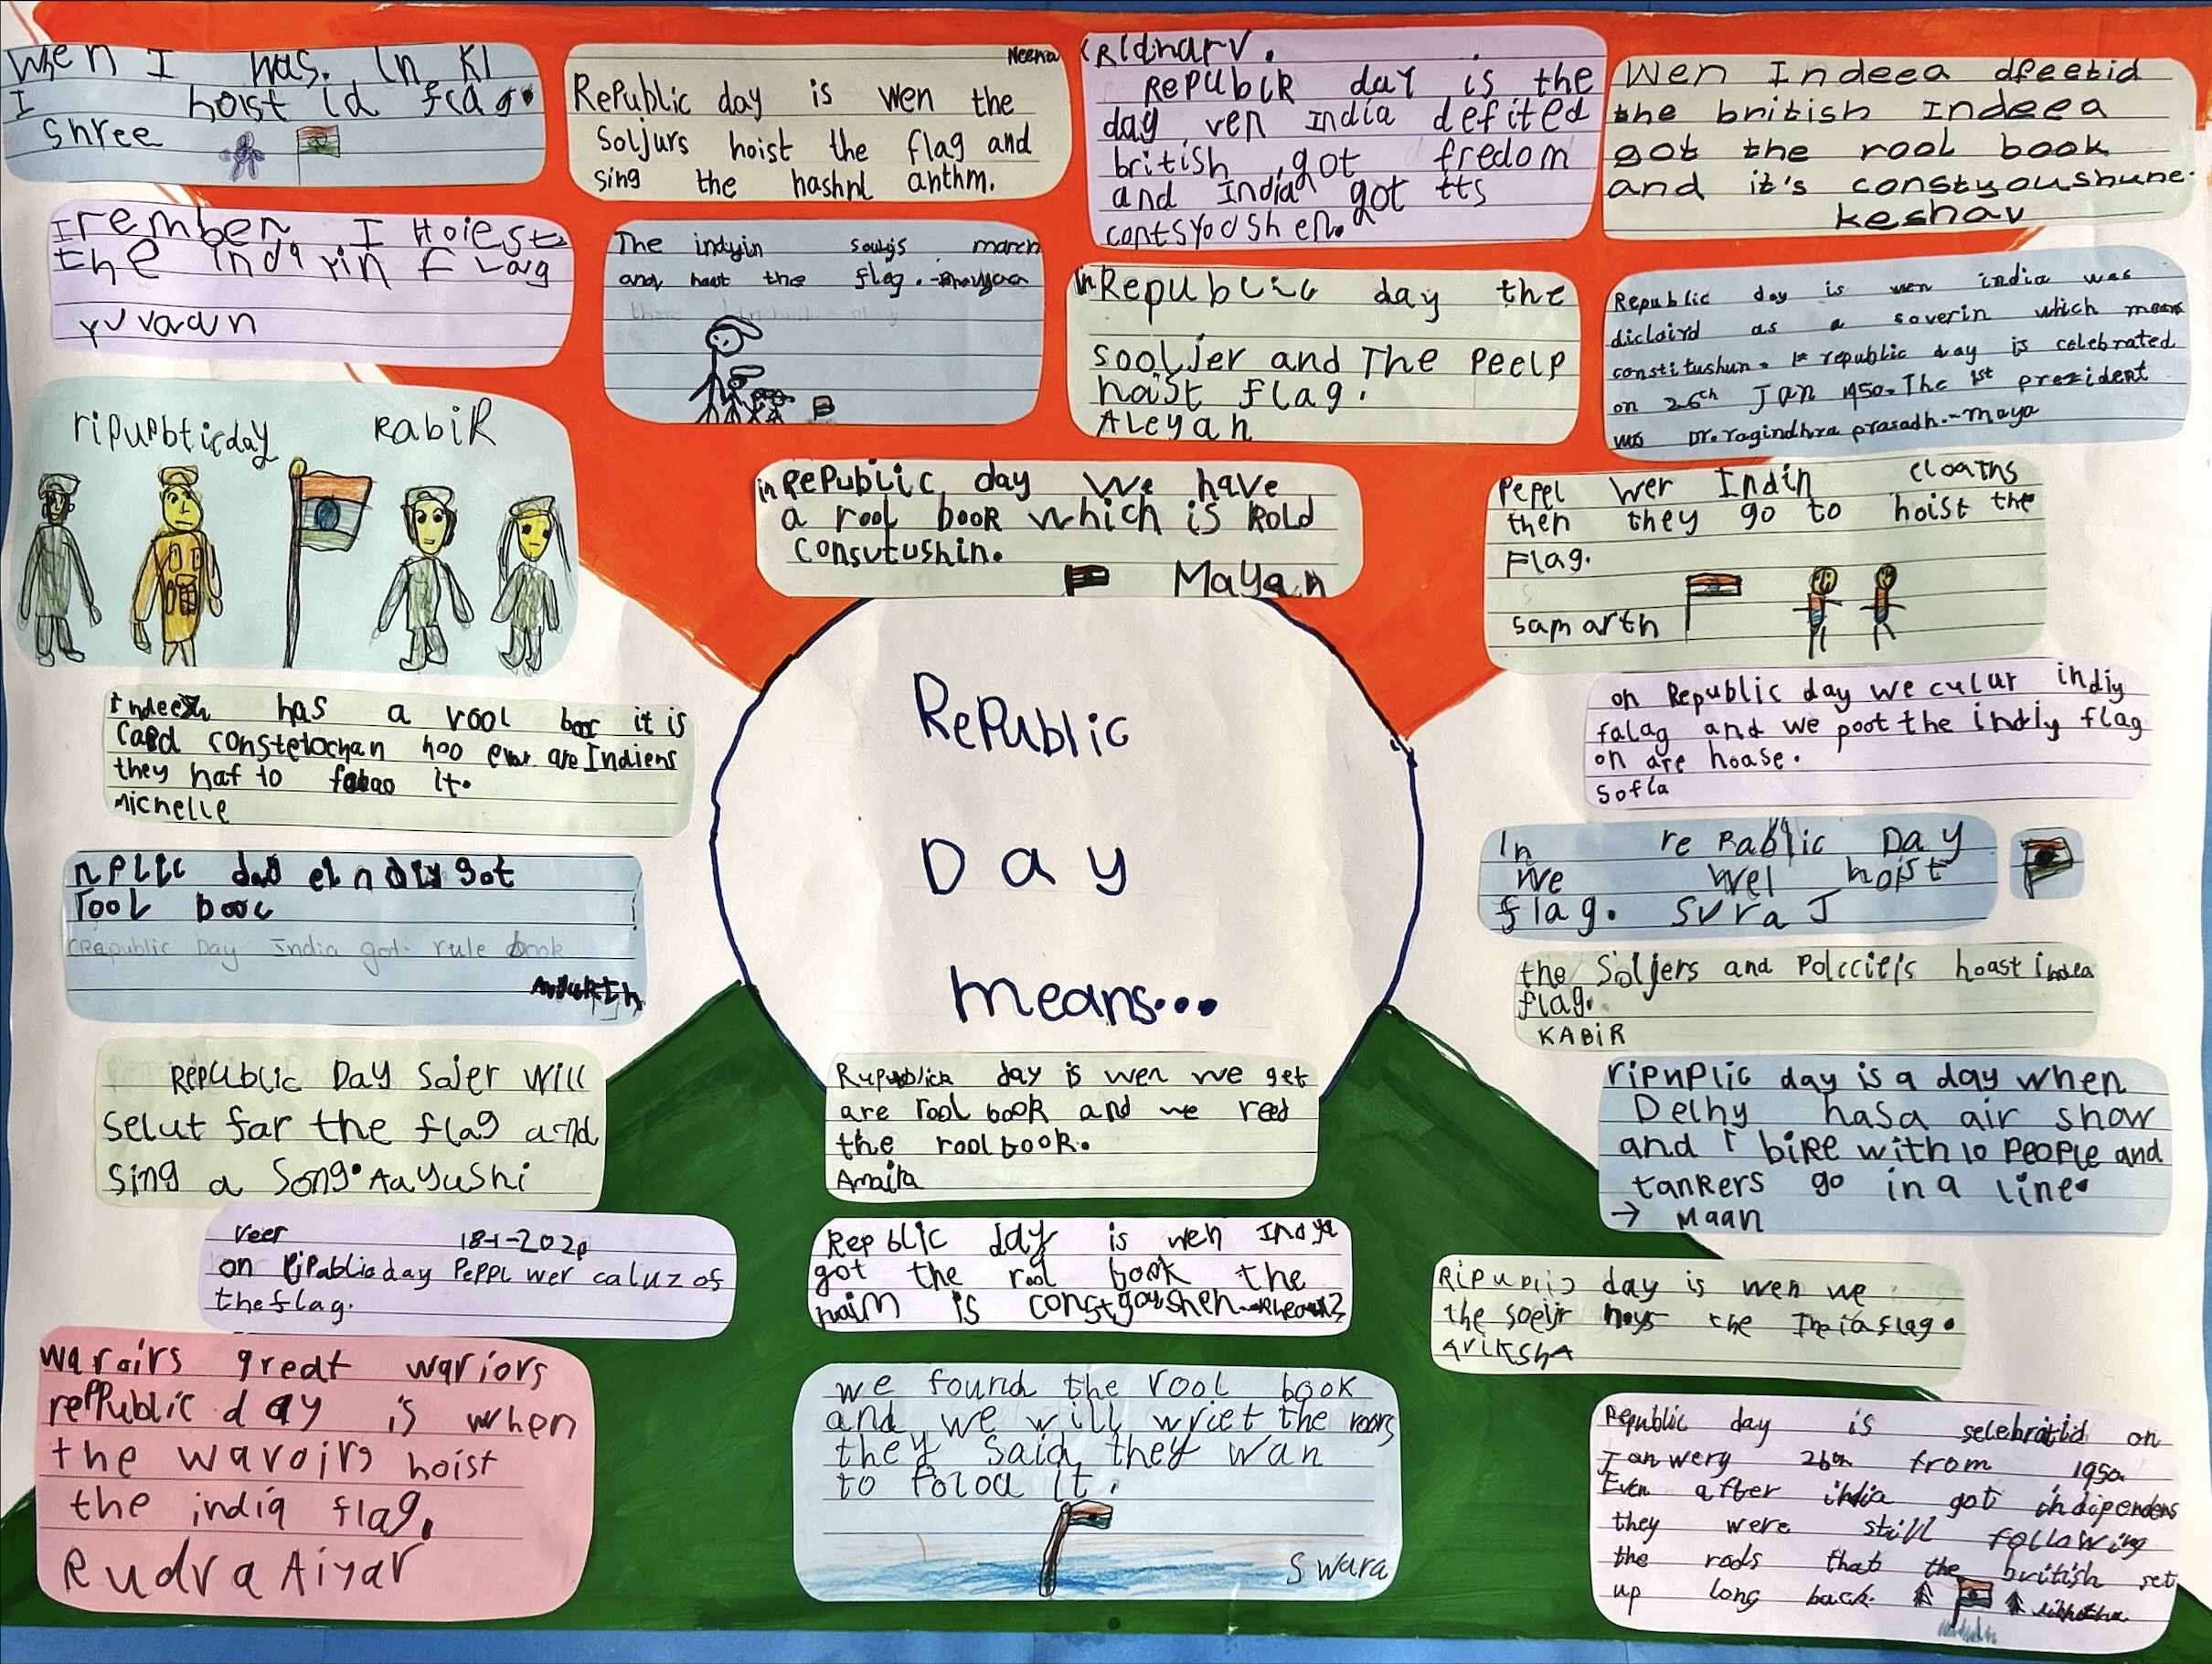 When I was. In KI
I hoist id flag.
Shree
Neema
Republic day is wen the
Soljurs hoist the flag and
sing the nashnl anthm.
Republck day is the
day ven India defited
british got fredom
and India got tts
contsyodshen.
Wen Indeea dfeetid
the british Indeea
got the rool book
and it's constyoushune.
keshav
I rember I Hoiest
the Indiyin flag
yuvaan
The indyin march
and the flag.
In Republic day the
sooljer and The peelp
hoist flag.
ALeyah
Republic day is wen india was
diclaird as a soverin which means
constitushun. 1st republic day is celebrated
on 26th Jan 1950. The 1st prezident
was Dr. ragindhra prasadh. - maya
ripupblicday RabiR
in Republic day we have
a rool book which is kold
consutushin.
Mayan
Pepel wer Indin cloaths
then they go to hoist the
Flag.
samarth
Republic
Day
means...
has a rool it is
constetochan hoo ever are Indiens
they haf to it.
Michelle
on Republic day we culur indiy
falag and we poot the indiy flag
on are hoase.
Sofia
got
rool booc
Republic Day India got rule book
In re Rablic Day
We wel hoist
flag. SuraJ
the Soljers and Polccieis hoast indea
flag.
KABiR
Republic Day Sajer will
selut far the flag and
sing a Song. Aayushi
Rupublick day is wen we get
are rool book and we reed
the roolbook.
Amaira
ripuplic day is a day when
Delhy hasa air show
and 1 biRe with 10 people and
tankers go in a line.
→ Maan
Veer 18-1-2020
on Ripablicday Peppl wer caluz of
theflag.
Rep blic day is wen Indya
got the rool book the
naim is constgoushen
Ripuplic day is wen we
the the India flag.
AriKShA
warairs great wariors
reppublic day is when
the waroirs hoist
the india flag.
Rudra Aiyar
we found the rool book
and we will wriet the rools
they said they wan
to foloa it.
Swara
Republic day is selebratid on
Janwery 26th from 1950
Even after india got indipendens
they were still following
the rools that the british set
up long back.